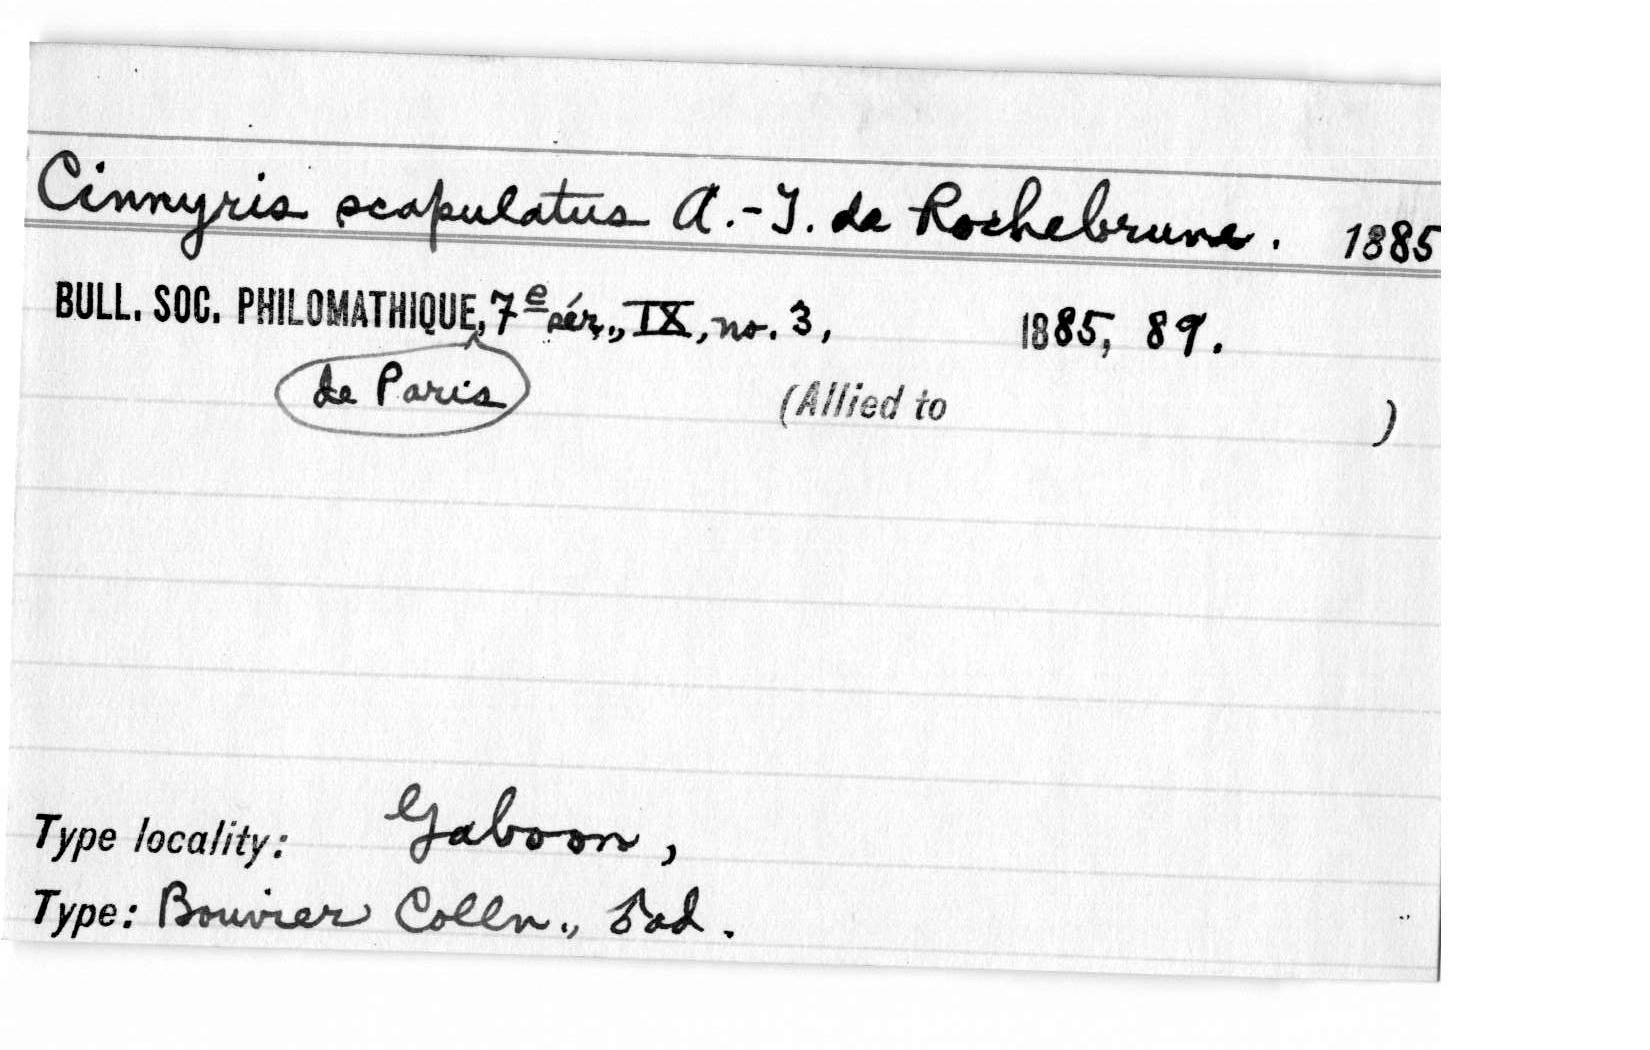 Cinnyris scapulatus A.-T. de Rochebrune. 1885
BULL. SOC. PHILOMATHIQUE, 7e sér., IX, no. 3, 1885, 89.
de Paris
(Allied to )
Type locality: Gaboon,
Type: Bouvier Colln., ♂ad.